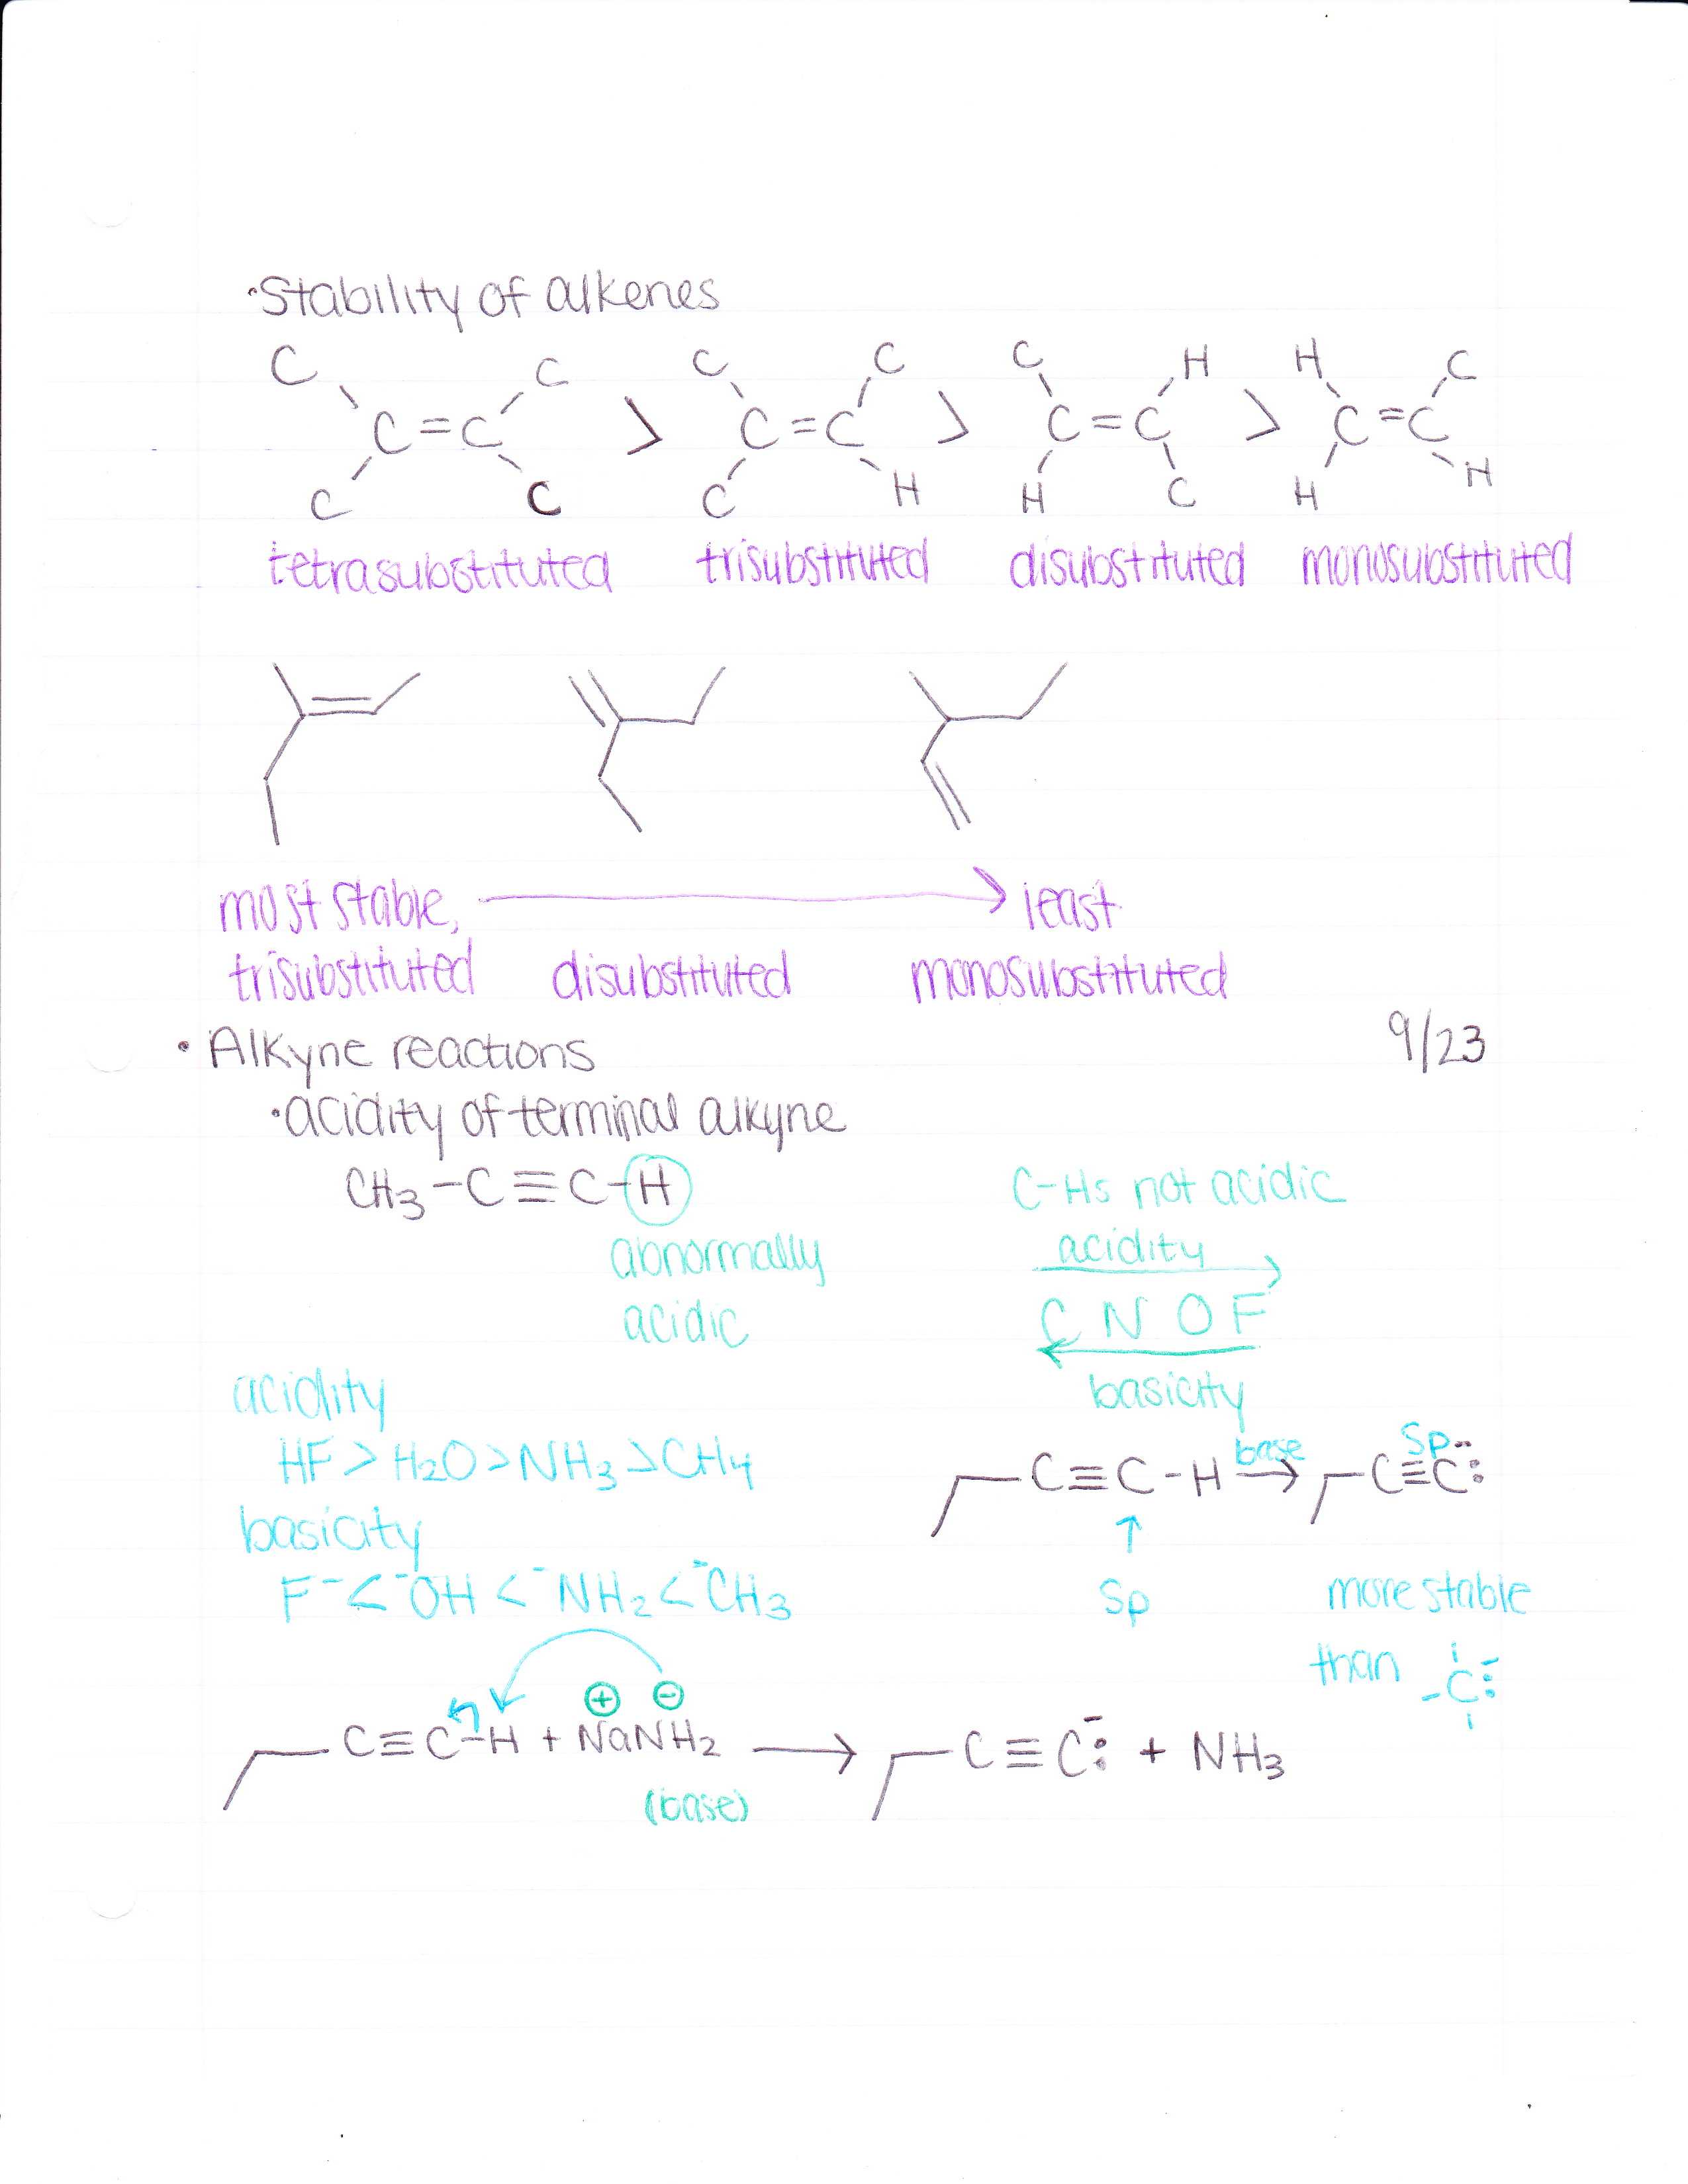 ·Stability of alkenes
C C C C C H H C
C=C > C=C > C=C > C=C
C C C H H C H H
tetrasubstituted trisubstituted disubstituted monosubstituted
most stable, → least
trisubstituted disubstituted monosubstituted
· Alkyne reactions 9/23
·acidity of terminal alkyne
CH₃-C≡C-H C-Hs not acidic
abnormally acidity
acidic C N O F
acidity basicity
HF > H₂O > NH₃ > CH₄
C≡C-H base → sp C≡C:⁻
basicity
F⁻ < ⁻OH < ⁻NH₂ < ⁻CH₃
↑
sp more stable
than -C:⁻
⊕ ⊖
C≡C-H + NaNH₂ → C≡C:⁻ + NH₃
(base)